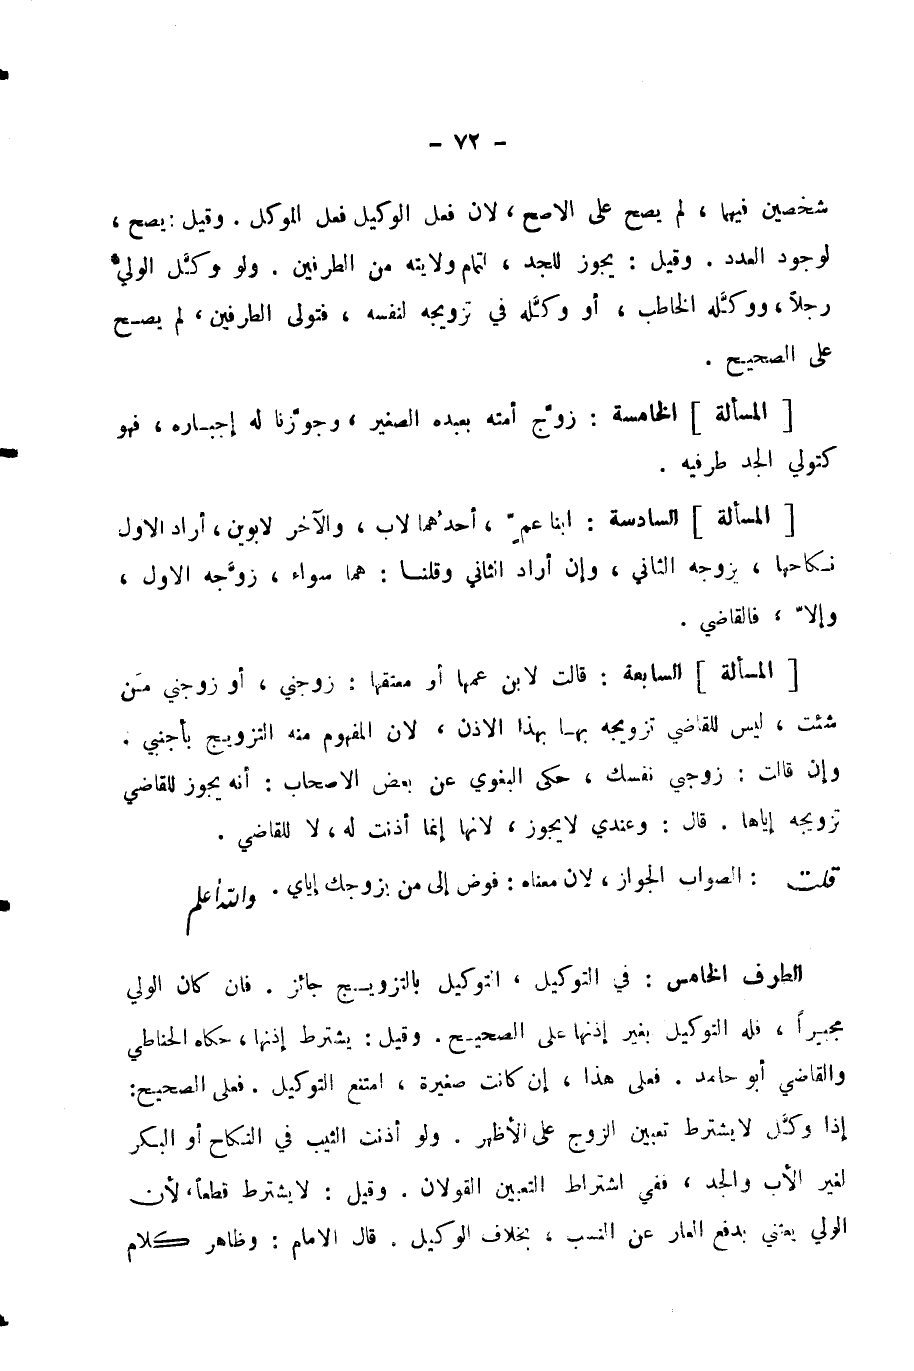 - ٧٢ -
شخصين فيها ، لم يصح على الاصح ، لان فعل الوكيل فعل الموكل . وقيل : يصح ،
لوجود العدد . وقيل : يجوز للجد ، لتمام ولايته من الطرفين . ولو وكَّل الوليُّ
رجلاً ، ووكَّله الخاطب ، أو وكَّله في تزويجه لنفسه ، فتولى الطرفين ، لم يصح
على الصحيح .
[ المسألة ] الخامسة : زوَّج أمته بعبده الصغير ، وجوَّزنا له إجباره ، فهو
كتولي الجد طرفيه .
[ المسألة ] السادسة : ابنا عمٍّ ، أحدُهما لاب ، والآخر لابوين ، أراد الاول
نكاحها ، يزوجه الثاني ، وإن أراد الثاني وقلنا : هما سواء ، زوَّجه الاول ،
وإلاّ ، فالقاضي .
[ المسألة ] السابعة : قالت لابن عمها أو معتقها : زوجني ، أو زوجني مَن
شئت ، ليس للقاضي تزويجه بها بهذا الاذن ، لان المفهوم منه التزويج بأجنبي .
وإن قالت : زوجني نفسك ، حكى البغوي عن بعض الاصحاب : أنه يجوز للقاضي
تزويجه إياها . قال : وعندي لايجوز ، لانها إنما أذنت له ، لا للقاضي .
قلت : الصواب الجواز ، لان معناه : فوض إلى من يزوجك إياي . والله أعلم
الطرف الخامس : في التوكيل ، التوكيل بالتزويج جائز . فان كان الولي
مجبراً ، فله التوكيل بغير إذنها على الصحيح . وقيل : يشترط إذنها ، حكاه الحناطي
والقاضي أبو حامد . فعلى هذا ، إن كانت صغيرة ، امتنع التوكيل . فعلى الصحيح :
إذا وكَّل لايشترط تعيين الزوج على الأظهر . ولو أذنت الثيب في النكاح أو البكر
لغير الأب والجد ، ففي اشتراط التعيين القولان . وقيل : لايشترط قطعاً ، لأن
الولي يعتني بدفع العار عن النسب ، بخلاف الوكيل . قال الامام : وظاهر كلام